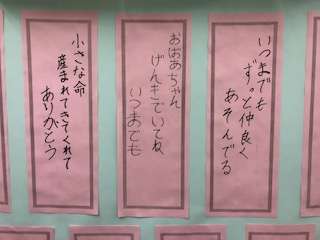 いつまでも
ずっと仲良く
あそんでる
おばあちゃん
げんきでいてね
いつまでも
小さな命
産まれてきてくれて
ありがとう